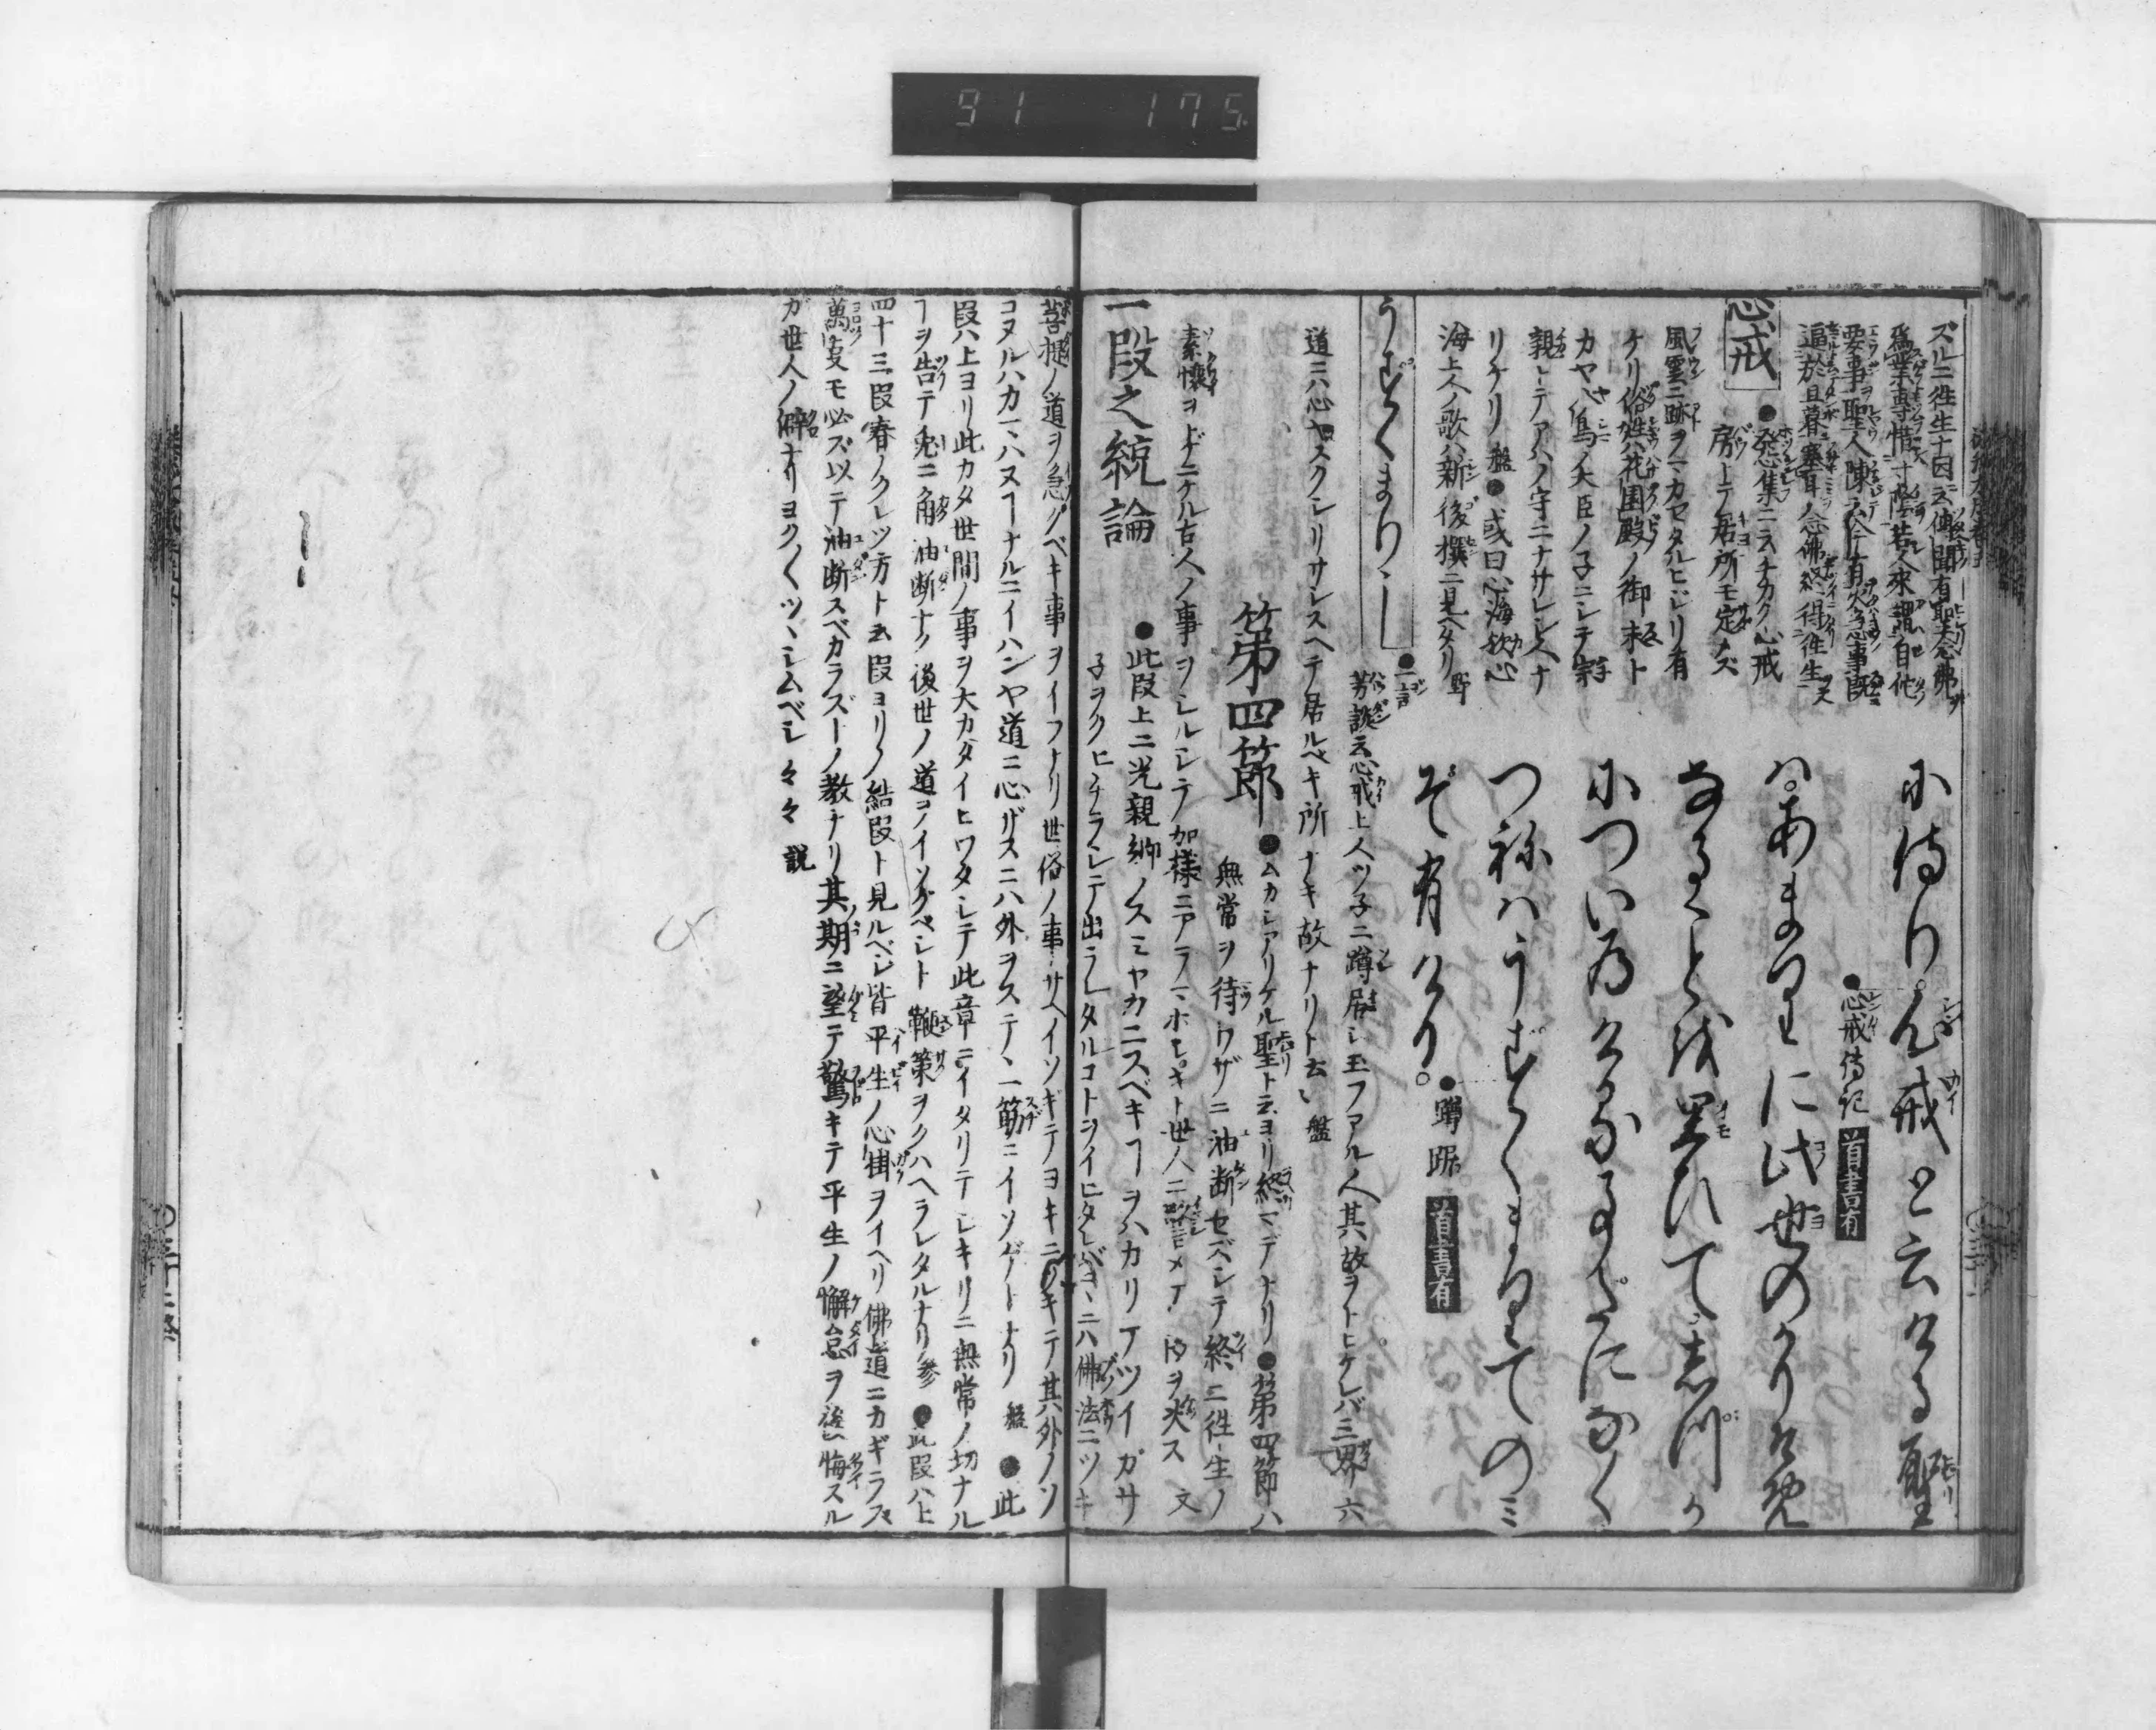 91 175
ズルニ徃生十因ニ云傳聞有聖念佛
爲業專惜寸陰若人來謂自他
要事聖人陳云今有火急事既
逼於旦暮塞耳念佛終得徃生
心戒
●發心集ニ云チカク心戒
房トテ居所モ定メズ
風雲ニ跡ヲマカセタルヒジリ有
ケリ俗姓ハ花園殿ノ御末ト
カヤ八嶋ノ大臣ノ子ニシテ宗
親トテアハノ守ニナサレシ人ナ
リケリ 盤●或曰心海歟心
海上人ノ歌ハ新後撰ニ見ヘタリ 野
に侍り。心戒と云ける聖
●心戒傳記 首書有
は。あまりに此世のかりそめ
なることを思ひて。しづか
についゐけることだになく
つねはうずくまりてのミ
ぞ有ける。
●蹲踞 首書有
うずくまり
●一言
芳談云心戒上人ツ子ニ蹲居シ玉フアル人其故ヲトヒケレバ三界六
道ニハ心ヤスクシリサシスヘテ居ルベキ所ナキ故ナリト云々 盤
第四節
●ムカシアリケル聖ト云ヨリ終マデナリ●第四節ハ
無常ヲ待ワザニ油断セズシテ終ニ徃生ノ
素懷ヲトゲケル古人ノ事ヲシルシテ加様ニアラマホシキト世人ニ
一段之統論
●此段上ニ光親卿ノスミヤカニスベキヿヲハカリアツイガサ
子ヲクヒチラシテ出ラレタルコトヲイヒタレバコヽニハ佛法ニツキ
菩提ノ道ヲ急グベキ事ヲイフナリ世俗ノ事サヘイソギテヨキニ
コヌルハカマハヌヿナルニイハンヤ道ニ心ザスニハ外ヲステヽ一筋ニイソゲトナリ 盤●此
段ハ上ヨリ此カタ世間ノ事ヲ大カタイヒワタシテ此章ニイタリテシキリニ無常ノ切ナル
ヿヲ告テ兎ニ角油断ナク後世ノ道ヲイソグベシト鞭策ヲクハヘラレタルナリ 参●此段ハ上
四十三段春ノクレツ方ト云段ヨリノ結段ト見ルベシ皆平生ノ心掛ヲイヘリ佛道ニカギラズ
萬事モ必ズ以テ油断スベカラズトノ教ナリ其期ニ望テ驚キテ平生ノ懈怠ヲ後悔スル
ガ世人ノ癖ナリヨクヽツヽシムベシ々々 説